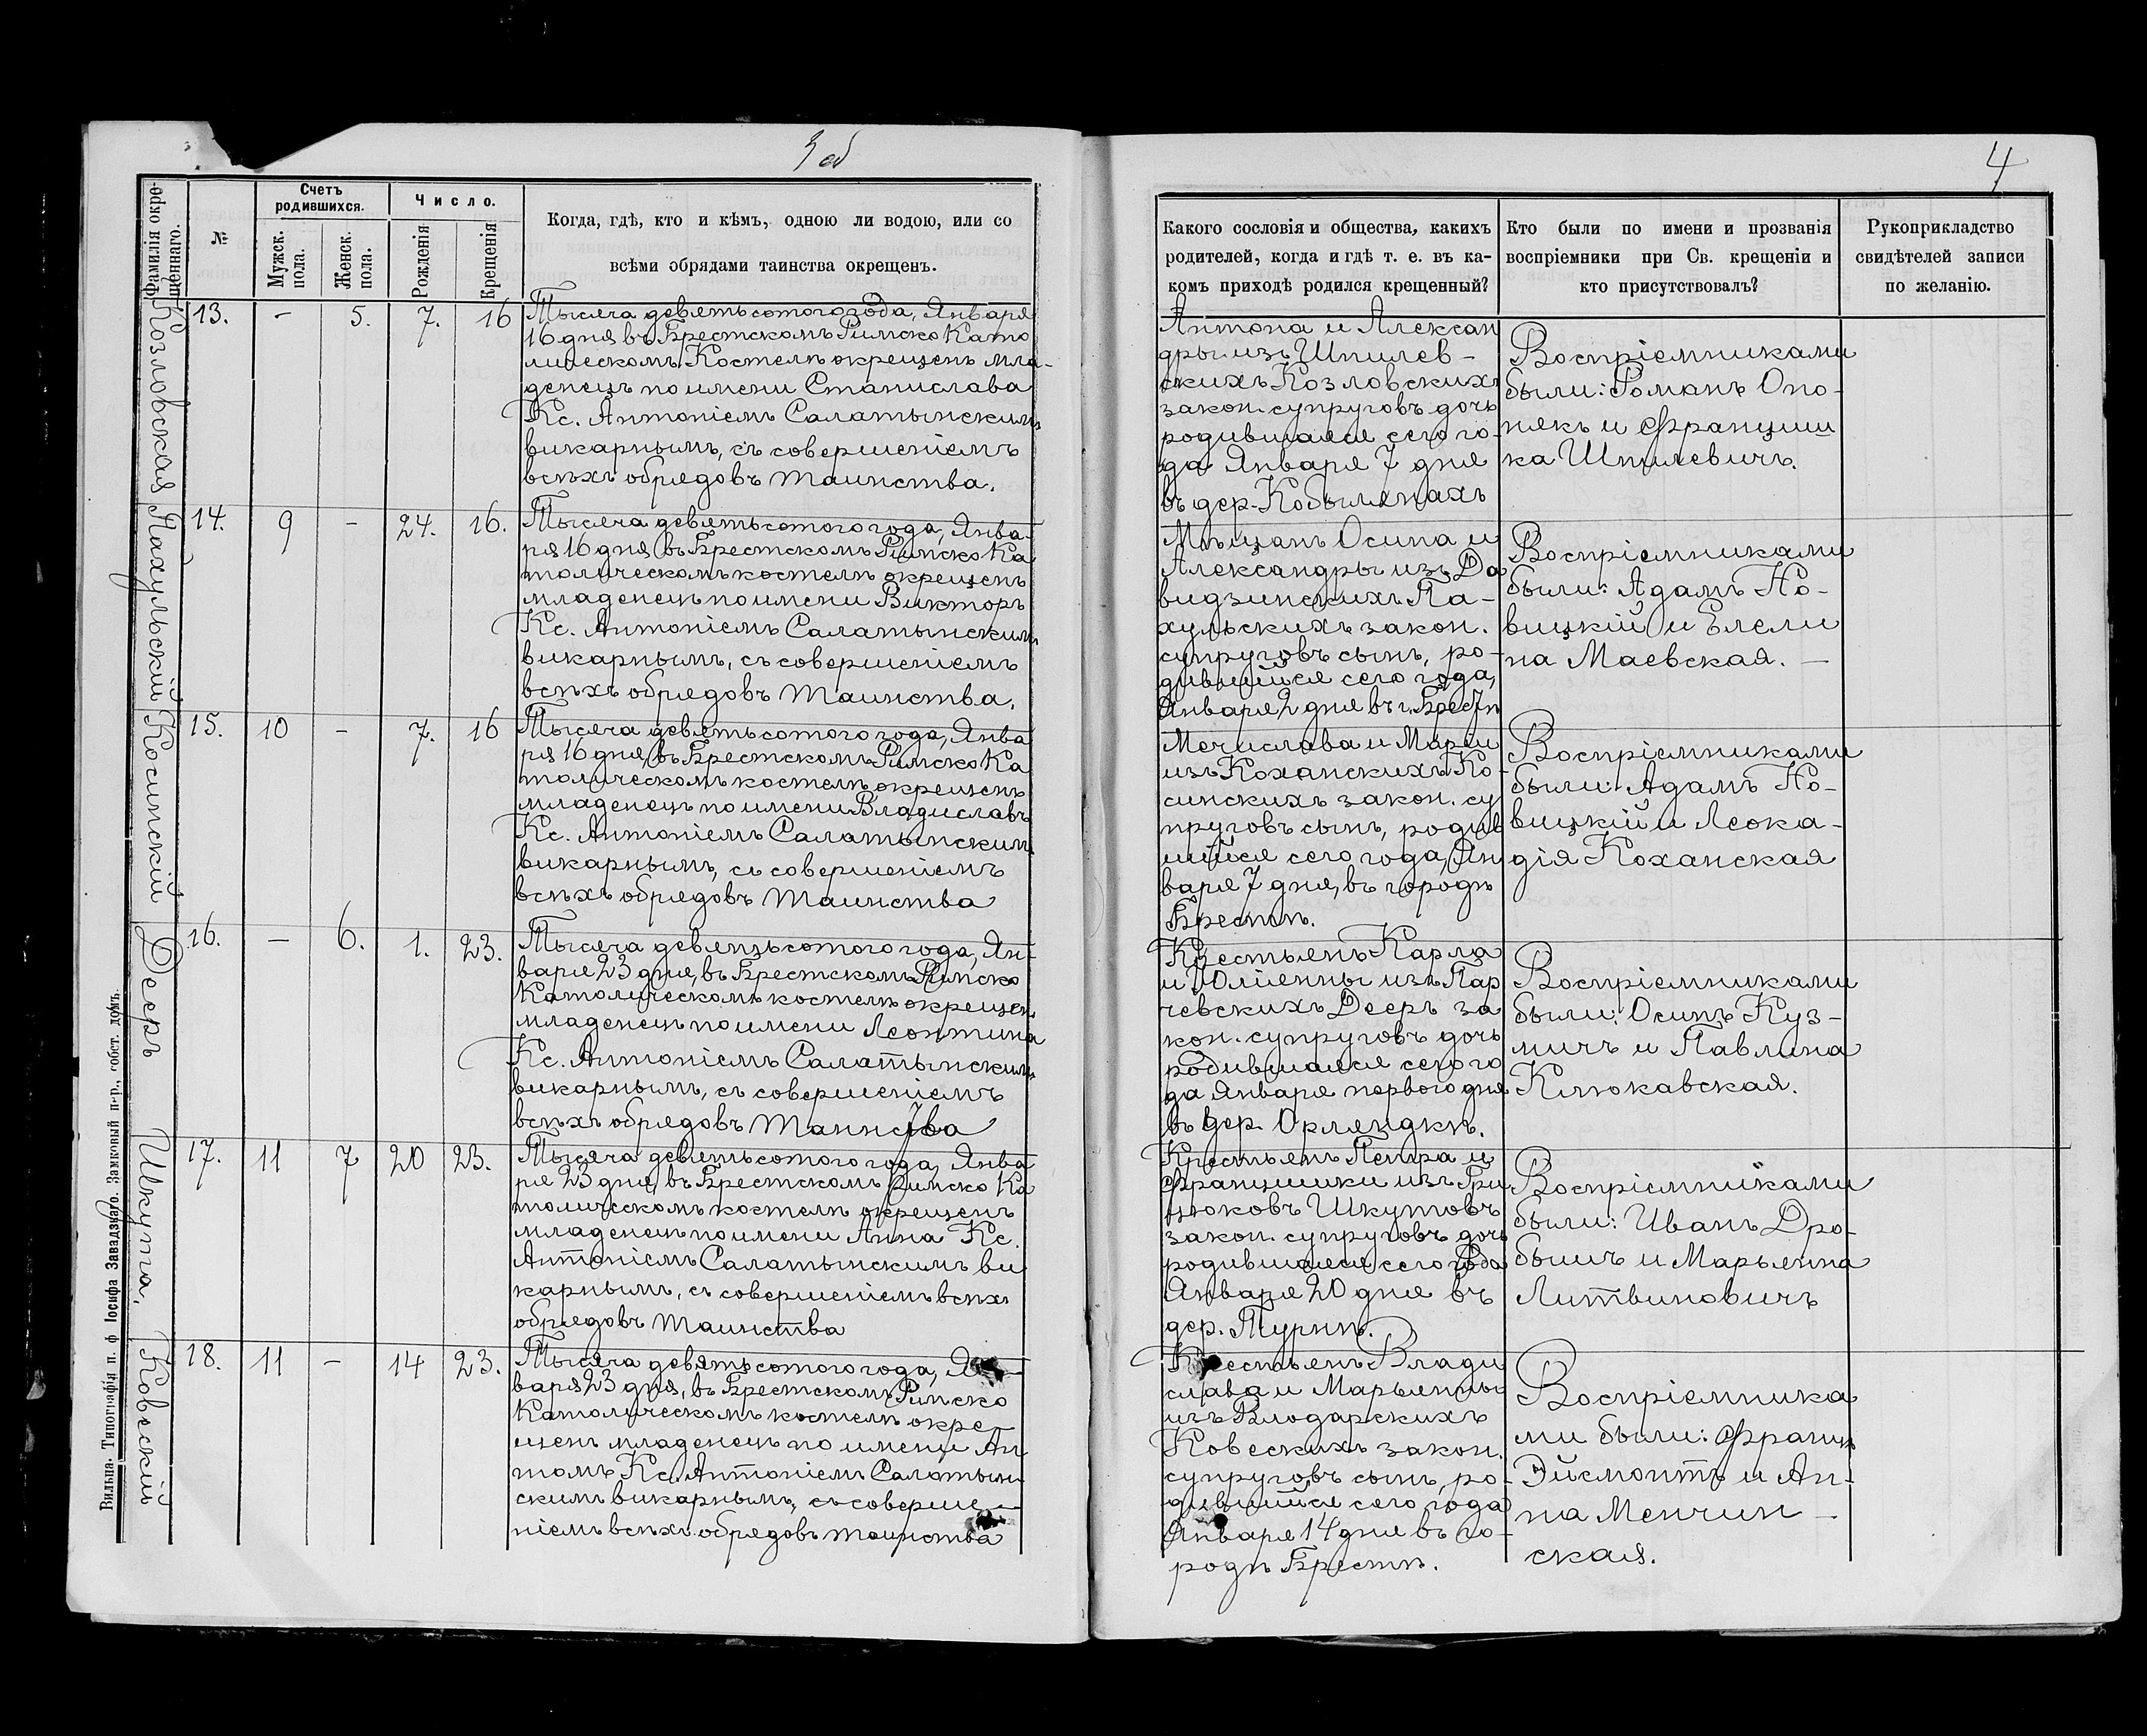 3 об
4
Фамилія окре-
щеннаго.
№
Счетъ
родившихся.
Мужск.
пола.
Женск.
пола.
Число.
Рожденія
Крещенія
Когда, гдѣ, кто и кѣмъ, одною ли водою, или со
всѣми обрядами таинства окрещенъ.
Какого сословія и общества, какихъ
родителей, когда и гдѣ т. е. въ ка-
комъ приходѣ родился крещенный?
Кто были по имени и прозванія
воспріемники при Св. крещеніи и
кто присутствовалъ?
Рукоприкладство
свидѣтелей записи
по желанію.
Козловская
13. - 5. 7. 16
Тысяча девятьсотого года, Января
16 дня въ Брестскомъ Римско Като
лическомъ Костелѣ окрещенъ мла-
денецъ по имени Станислава
Кс. Антоніемъ Салатынскимъ
викарнымъ, съ совершеніемъ
всѣхъ обрядовъ таинства.
Антона и Алексан
дры изъ Шпилев-
скихъ Козловскихъ
закон. супруговъ дочь
родившаяся сего го-
да Января 7 дня
въ дер. Кобылянахъ
Воспріемниками
были: Романъ Опо-
някъ и Франциш
ка Шпилевичъ.
Пахульскій
14. 9 - 24. 16.
Тысяча девятьсотого года, Янва-
ря 16 дня, въ Брестскомъ Римско Ка
толическомъ костелѣ окрещенъ
младенецъ по имени Викторъ
Кс. Антоніемъ Салатынскимъ
викарнымъ, съ совершеніемъ
всѣхъ обрядовъ таинства.
Мѣщанъ Осипа и
Александры изъ Да
видзинскихъ Па-
хульскихъ закон.
супруговъ сынъ, ро-
дившійся сего года,
Января 2 дня въ г. Брестѣ
Воспріемниками
были: Адамъ Но-
вицкій и Елели
на Маевская. -
Косинскій
15. 10 - 7. 16
Тысяча девятьсотого года, Янва
ря 16 дня, въ Брестскомъ Римско Ка
толическомъ костелѣ окрещенъ
младенецъ по имени Владиславъ
Кс. Антоніемъ Салатынскимъ
викарнымъ, съ совершеніемъ
всѣхъ обрядовъ таинства
Мечислава и Маріи
изъ Коханскихъ Ко-
синскихъ закон. су
пруговъ сынъ, родив
шійся сего года, Ян
варя 7 дня, въ городѣ
Брестѣ.
Воспріемниками
были: Адамъ Но-
вицкій и Леока-
дія Коханская
Дееръ
16. - 6. 1. 23.
Тысяча девятьсотого года, Ян-
варя 23 дня, въ Брестскомъ Римско
Католическомъ костелѣ окрещенъ
младенецъ по имени Леонтина
Кс. Антоніемъ Салатынскимъ
викарнымъ, съ совершеніемъ
всѣхъ обрядовъ таинства
Крестьянъ Карла
и Юліянны изъ Пар
чевскихъ Дееръ за
кон. супруговъ дочь
родившаяся сего го
да Января первого дня
въ дер. Орляндкѣ.
Воспріемниками
были: Осипъ Куз-
мичъ и Павлина
Клюкавская.
Шкута,
17. 11 7 20 23.
Тысяча девятьсотого года, Янва
ря 23 дня, въ Брестскомъ Римско Ка
толическомъ костелѣ окрещенъ
младенецъ по имени Анна Кс.
Антоніемъ Салатынскимъ ви
карнымъ, съ совершеніемъ всѣхъ
обрядовъ таинства
Крестьянъ Петра и
Францишки изъ Гри
цюковъ Шкутовъ
закон. супруговъ дочь
родившаяся сего года
Января 20 дня въ
дер. Турнѣ.
Воспріемниками
были: Иванъ Дро-
бышъ и Марьянна
Литвиновичъ
Ковескій
18. 11 - 14 23.
Тысяча девятьсотого года, Ян
варя 23 дня, въ Брестскомъ Римско
Католическомъ костелѣ окре-
щенъ младенецъ по имени Ан
тонъ Кс. Антоніемъ Салатын-
скимъ викарнымъ, съ соверше-
ніемъ всѣхъ обрядовъ таинства
Крестьянъ Влади
слава и Марьянны
изъ Влодарскихъ
Ковескихъ закон.
супруговъ сынъ, ро-
дившійся сего года
Января 14 дня въ го-
родѣ Брестѣ.
Воспріемника
ми были: Францъ
Эйсмонтъ и Ан-
на Менчин-
ская.
Вильна. Типографія п. ф. Іосифа Завадзкаго. Замковый п-р., собст. домъ.